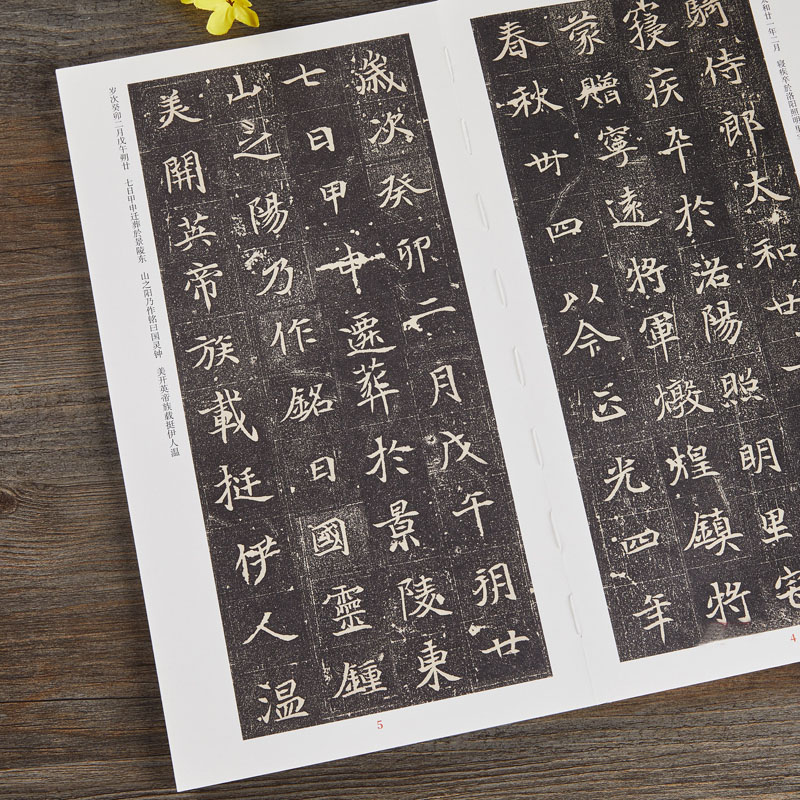 騎侍郎太和廿一
寢疾卒於洛陽照明里宅
蒙贈寧遠將軍燉煌鎮將
春秋卌四以今正光四年
太和廿一年二月 寝疾卒於洛阳照明里
4
歲次癸卯二月戊午朔廿
七日甲申遷葬於景陵東
山之陽乃作銘曰國靈鍾
美開英帝族載挺伊人温
岁次癸卯二月戊午朔廿 七日甲申迁葬於景陵东 山之阳乃作铭曰国灵钟 美开英帝族载挺伊人温
5